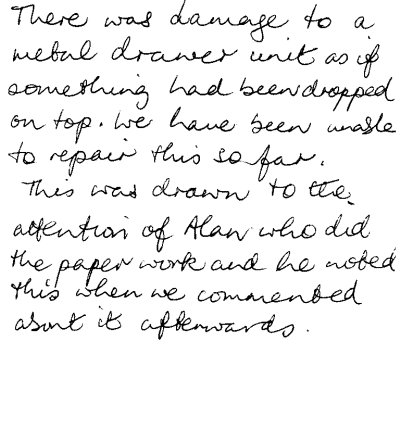 There was damage to a
metal drawer unit as if
something had been dropped
on top. We have been unable
to repair this so far.
This was drawn to the
attention of Alan who did
the paper work and he noted
this when we commented
about it afterwards.